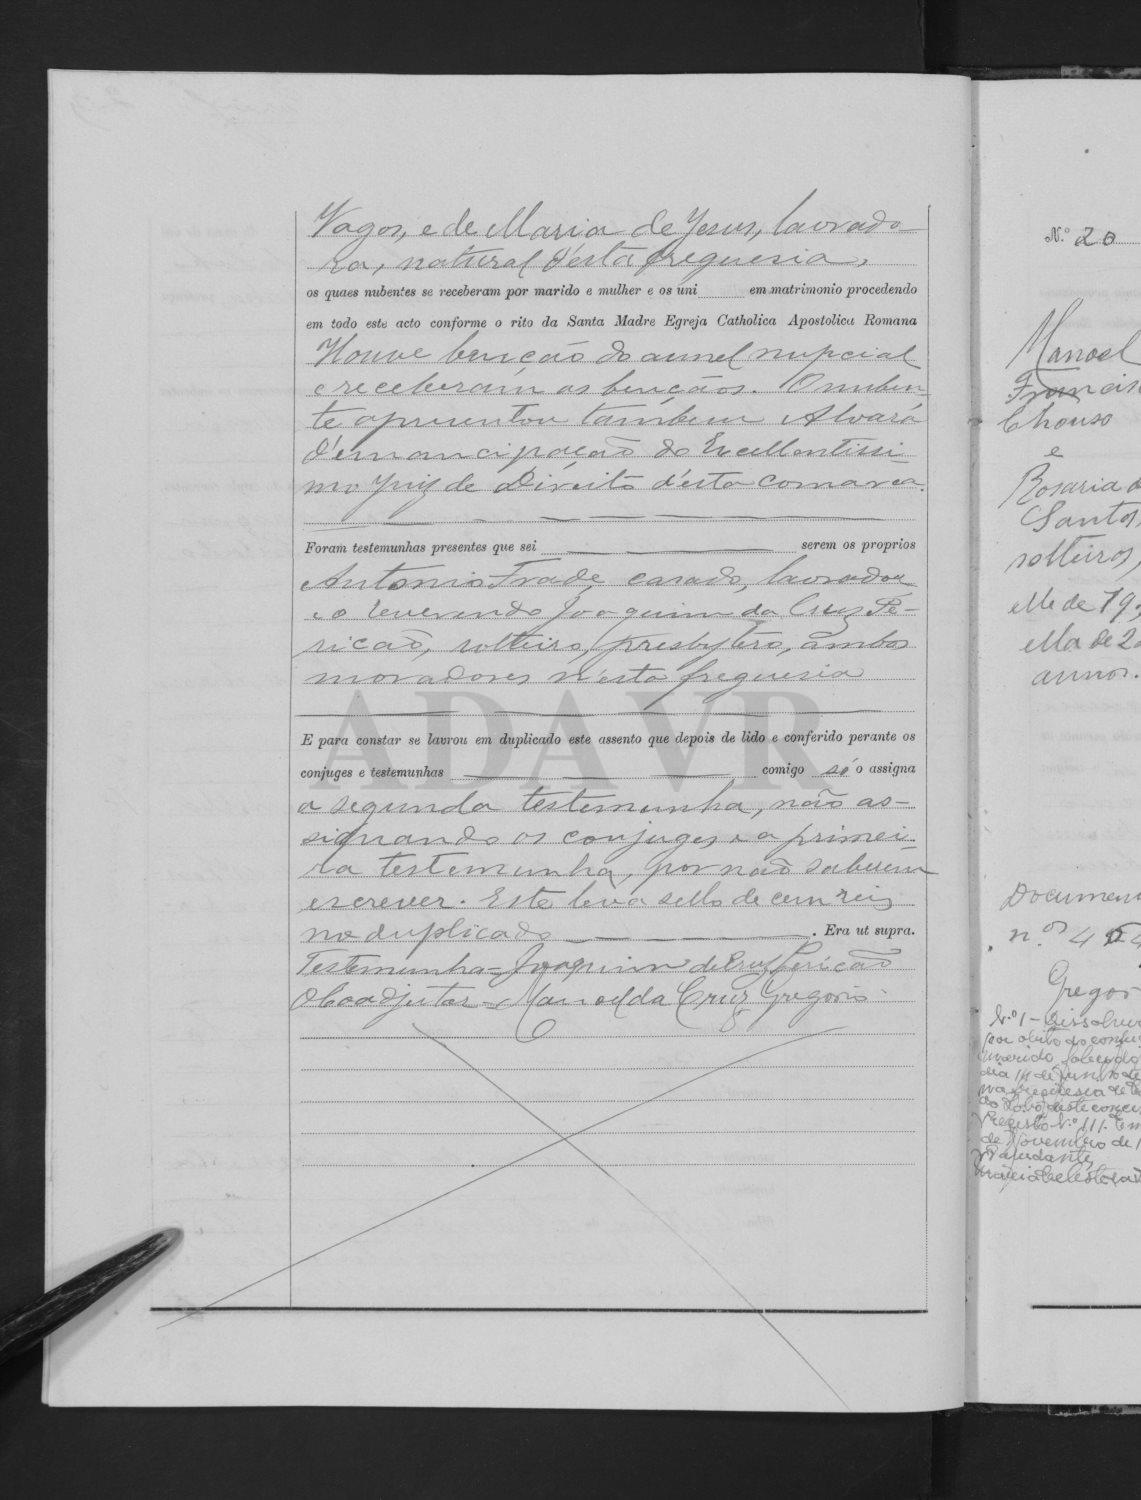 Vagos, e de Maria de Jesus, lavrado-
ra, natural d'esta freguesia,
os quaes nubentes se receberam por marido e mulher e os uni em matrimonio procedendo
em todo este acto conforme o rito da Santa Madre Egreja Catholica Apostolica Romana
Houve benção do annel nupcial
e receberam as bençãos. O nuben-
te apresentou tambem Alvará
d'emancipação do Excellentissi-
mo Juiz de Direito d'esta comarca.
Foram testemunhas presentes que sei serem os proprios
Antonio Frade, casado, lavrador
e o reverendo Joaquim da Cruz Pe-
ricão, solteiro, presbytero, ambos
moradores n'esta freguesia
E para constar se lavrou em duplicado este assento que depois de lido e conferido perante os
conjuges e testemunhas comigo só o assigna
a segunda testemunha, não as-
signando os conjuges e a primei-
ra testemunha, por não saberem
escrever. Este leva sello de cem reis
no duplicado . Era ut supra.
Testemunha = Joaquim da Cruz Pericão
O Coadjutor = Manoel da Cruz Gregorio
ADAVR
N.º 20
Manoel
Francis
Chouso
e
Rosaria d
Santos,
solteiros,
elle de 19
ella de 2
annos.
Documen
n.os 4
Gregor
N.º 1 - Dissolv
por obito do conju
marido falecido
dia 14 de Junho de
na freguesia de
do deste conce
Registo N.º 111. Em
de Novembro de 1
O Ajudante,